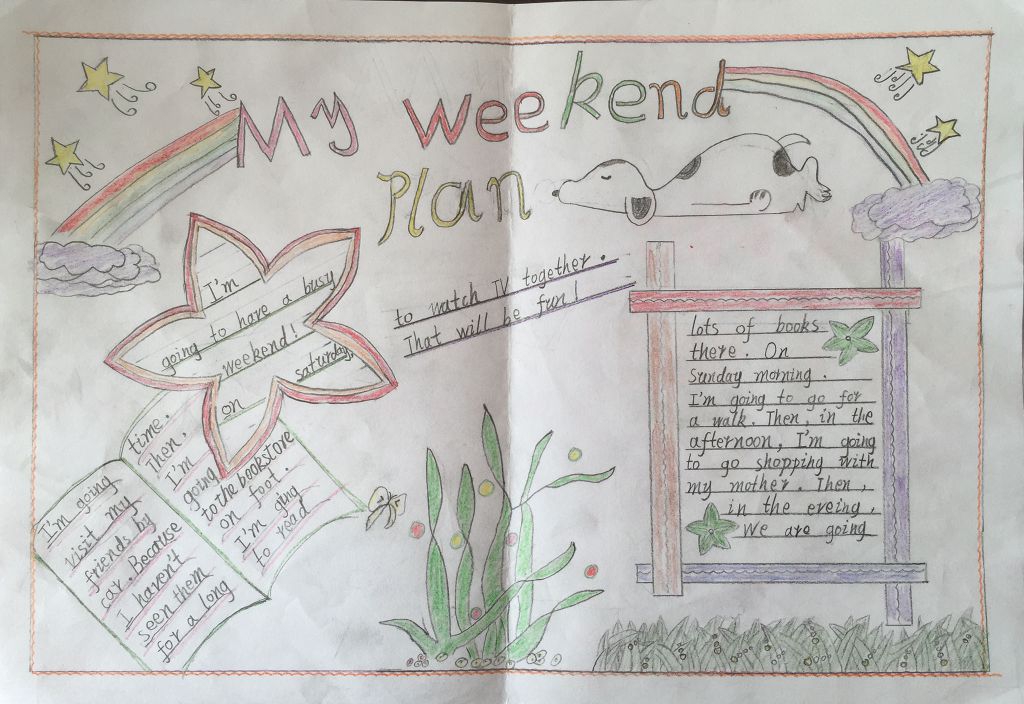 My weekend
Plan
I'm
going to have a busy
weekend!
saturday,
on
I'm going
visit my
friends by
car. Because
I haven't
seen them
for a long
time.
Then.
I'm
going
to the bookstore
on foot.
I'm ging
to read
lots of books
there. On
Sunday morning.
I'm going to go for
a walk. Then, in the
afternoon, I'm going
to go shopping with
my mother. Then,
in the eveing,
We are going
to watch TV together.
That will be fun!